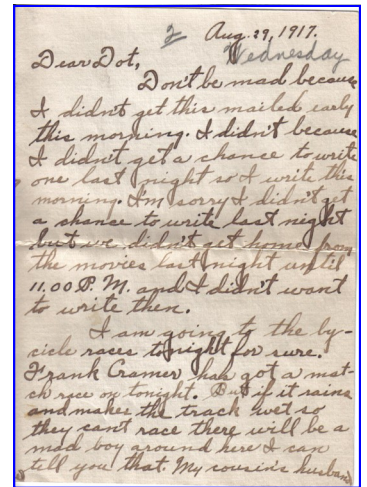 2 Aug. 29, 1917.
Wednesday
Dear Dot,
Don't be mad because
I didn't get this mailed early
this morning. I didn't because
I didn't get a chance to write
one last night so I write this
morning. I'm sorry I didn't get
a chance to write last night
but we didn't get home from
the movies last night until
11.00 P. M. and I didn't want
to write then.
I am going to the by-
cicle races tonight for sure.
Frank Cramer has got a mat-
ch race on tonight. But if it rains
and makes the track wet so
they cant race there will be a
mad boy around here I can
tell you that. My cousin's husband